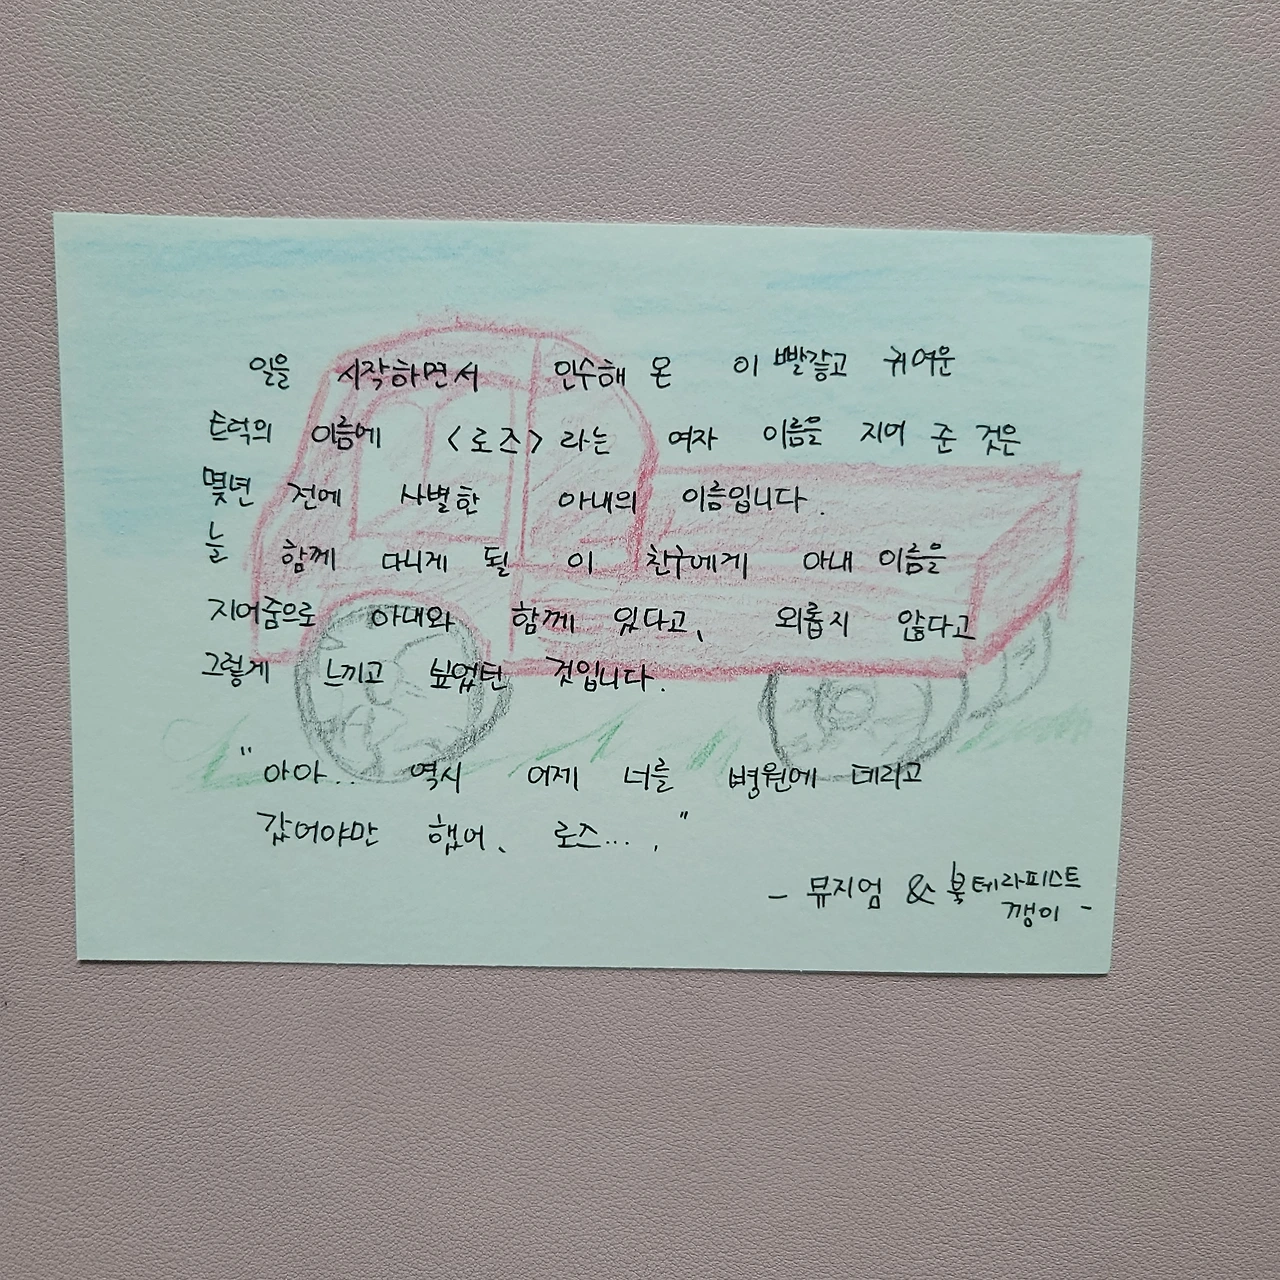 일을 시작하면서 인수해 온 이 빨갛고 귀여운
트럭의 이름에 <로즈>라는 여자 이름을 지어 준 것은
몇년 전에 사별한 아내의 이름입니다.
늘 함께 다니게 될 이 친구에게 아내 이름을
지어줌으로 아내와 함께 있다고, 외롭지 않다고
그렇게 느끼고 싶었던 것입니다.
"아아.. 역시 어제 너를 병원에 데리고
갔어야만 했어, 로즈...."
- 뮤지엄 & 북테라피스트
깽이 -